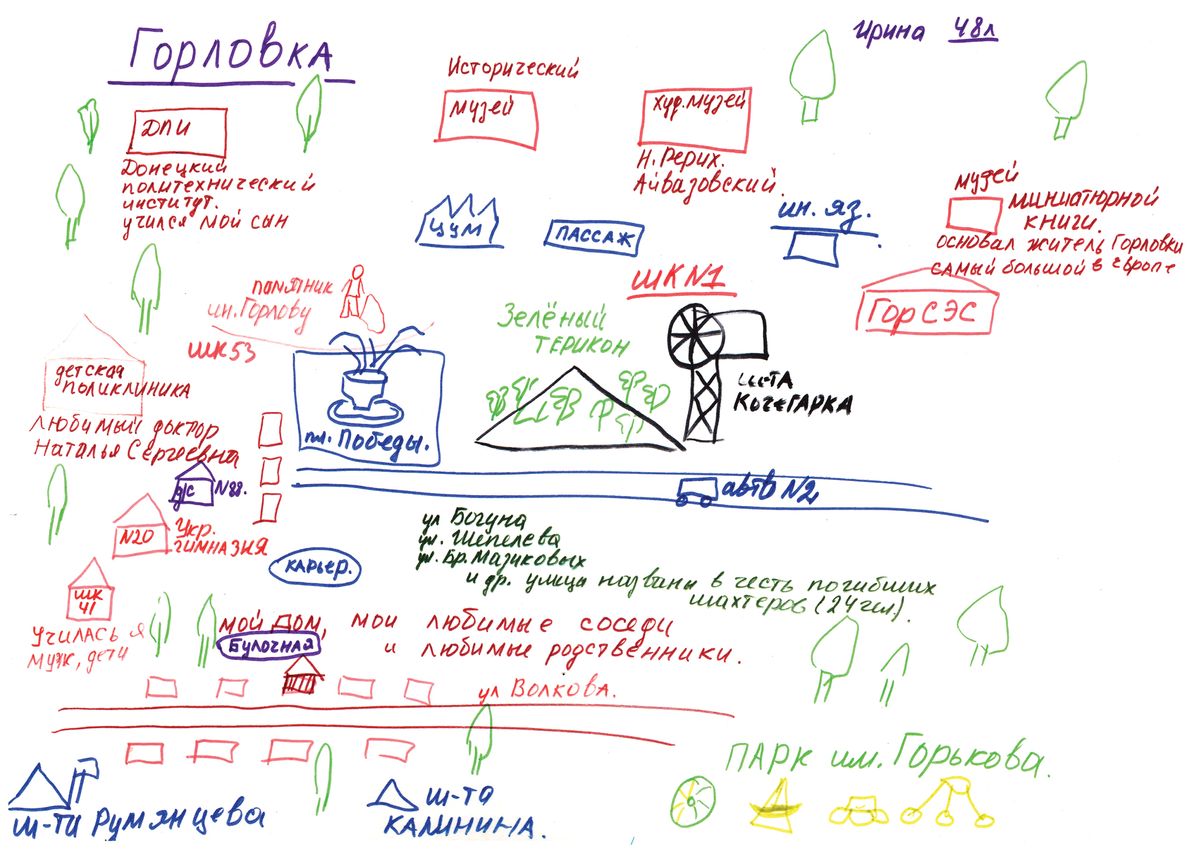 Горловка
Ирина 48л
Исторический
музей
худ. музей
Н. Рерих.
Айвазовский.
ДПИ
Донецкий
политехнический
институт.
учился мой сын
музей
миниатюрной
книги.
основал житель Горловки
самый большой в Европе
ЦУМ
ПАССАЖ
ин. яз.
памятник
ин. Горлову
шк 53
ШК N1
ГорСЭС
Зелёный
террикон
КОЧЕГАРКА
детская
поликлиника
Любимый доктор
Наталья Сергеевна
пл. Победы.
д/с N88.
авто N2
N20
Укр.
гимназия
карьер.
ул Богуна
ул. Шепелева
ул. Бр. Мазиковых
и др. улицы названы в честь погибших
шахтеров (24 чел.)
шк
41
Училась я
муж, дети
мой дом, мои любимые соседи
и любимые родственники.
Булочная
ул Волкова.
ПАРК им. Горькова.
ш-та Румянцева
ш-та
КАЛИНИНА.